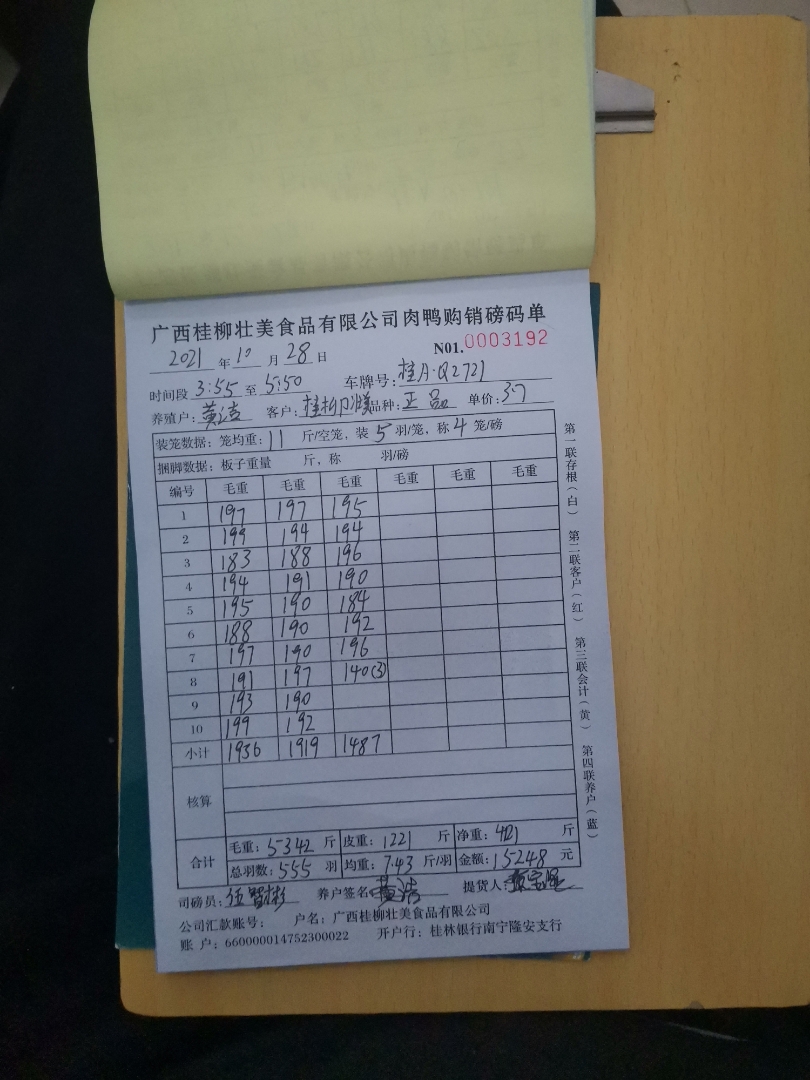 广西桂柳壮美食品有限公司肉鸭购销磅码单
2021 年 10 月 28 日 N01.0003192
时间段 3:55 至 5:50 车牌号: 桂A·Q2721
养殖户: 黄洁 客户: 桂柳 品种: 正品 单价: 37
装笼数据: 笼均重: 11 斤/空笼, 装 5 羽/笼, 称 4 笼/磅
捆脚数据: 板子重量 斤, 称 羽/磅
编号 毛重 毛重 毛重 毛重 毛重 毛重
1 197 197 195
2 199 194 194
3 183 188 196
4 194 191 190
5 195 190 184
6 188 190 192
7 197 190 196
8 191 197 140(3)
9 193 190
10 199 192
小计 1936 1919 1487
核算
合计
毛重: 5342 斤 皮重: 1221 斤 净重: 4121 斤
总羽数: 555 羽 均重: 7.43 斤/羽 金额: 15248 元
司磅员: 伍 养户签名: 黄洁 提货人:
公司汇款账号: 户名: 广西桂柳壮美食品有限公司
账 户: 660000014752300022 开户行: 桂林银行南宁隆安支行
第一联存根(白) 第二联客户(红) 第三联会计(黄) 第四联养户(蓝)